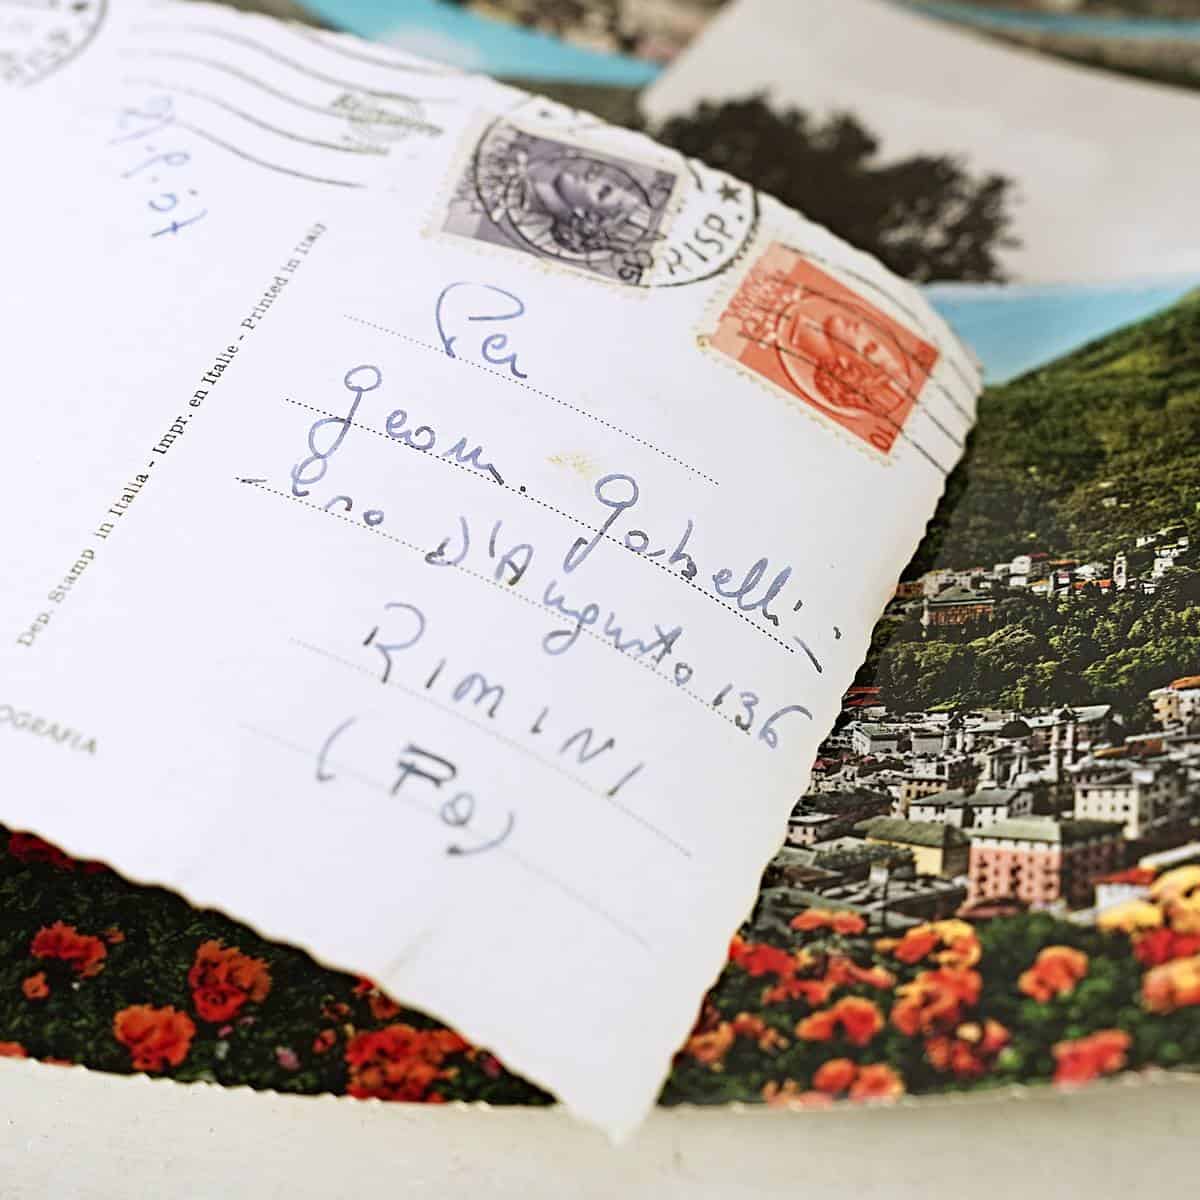 RISP.
15
10
Per
Geom. Gabrelli
C.so D'Augusto 136
RIMINI
(Fo)
Dep. Stamp in Italia - Impr. en Italie - Printed in Italy
OGRAFIA